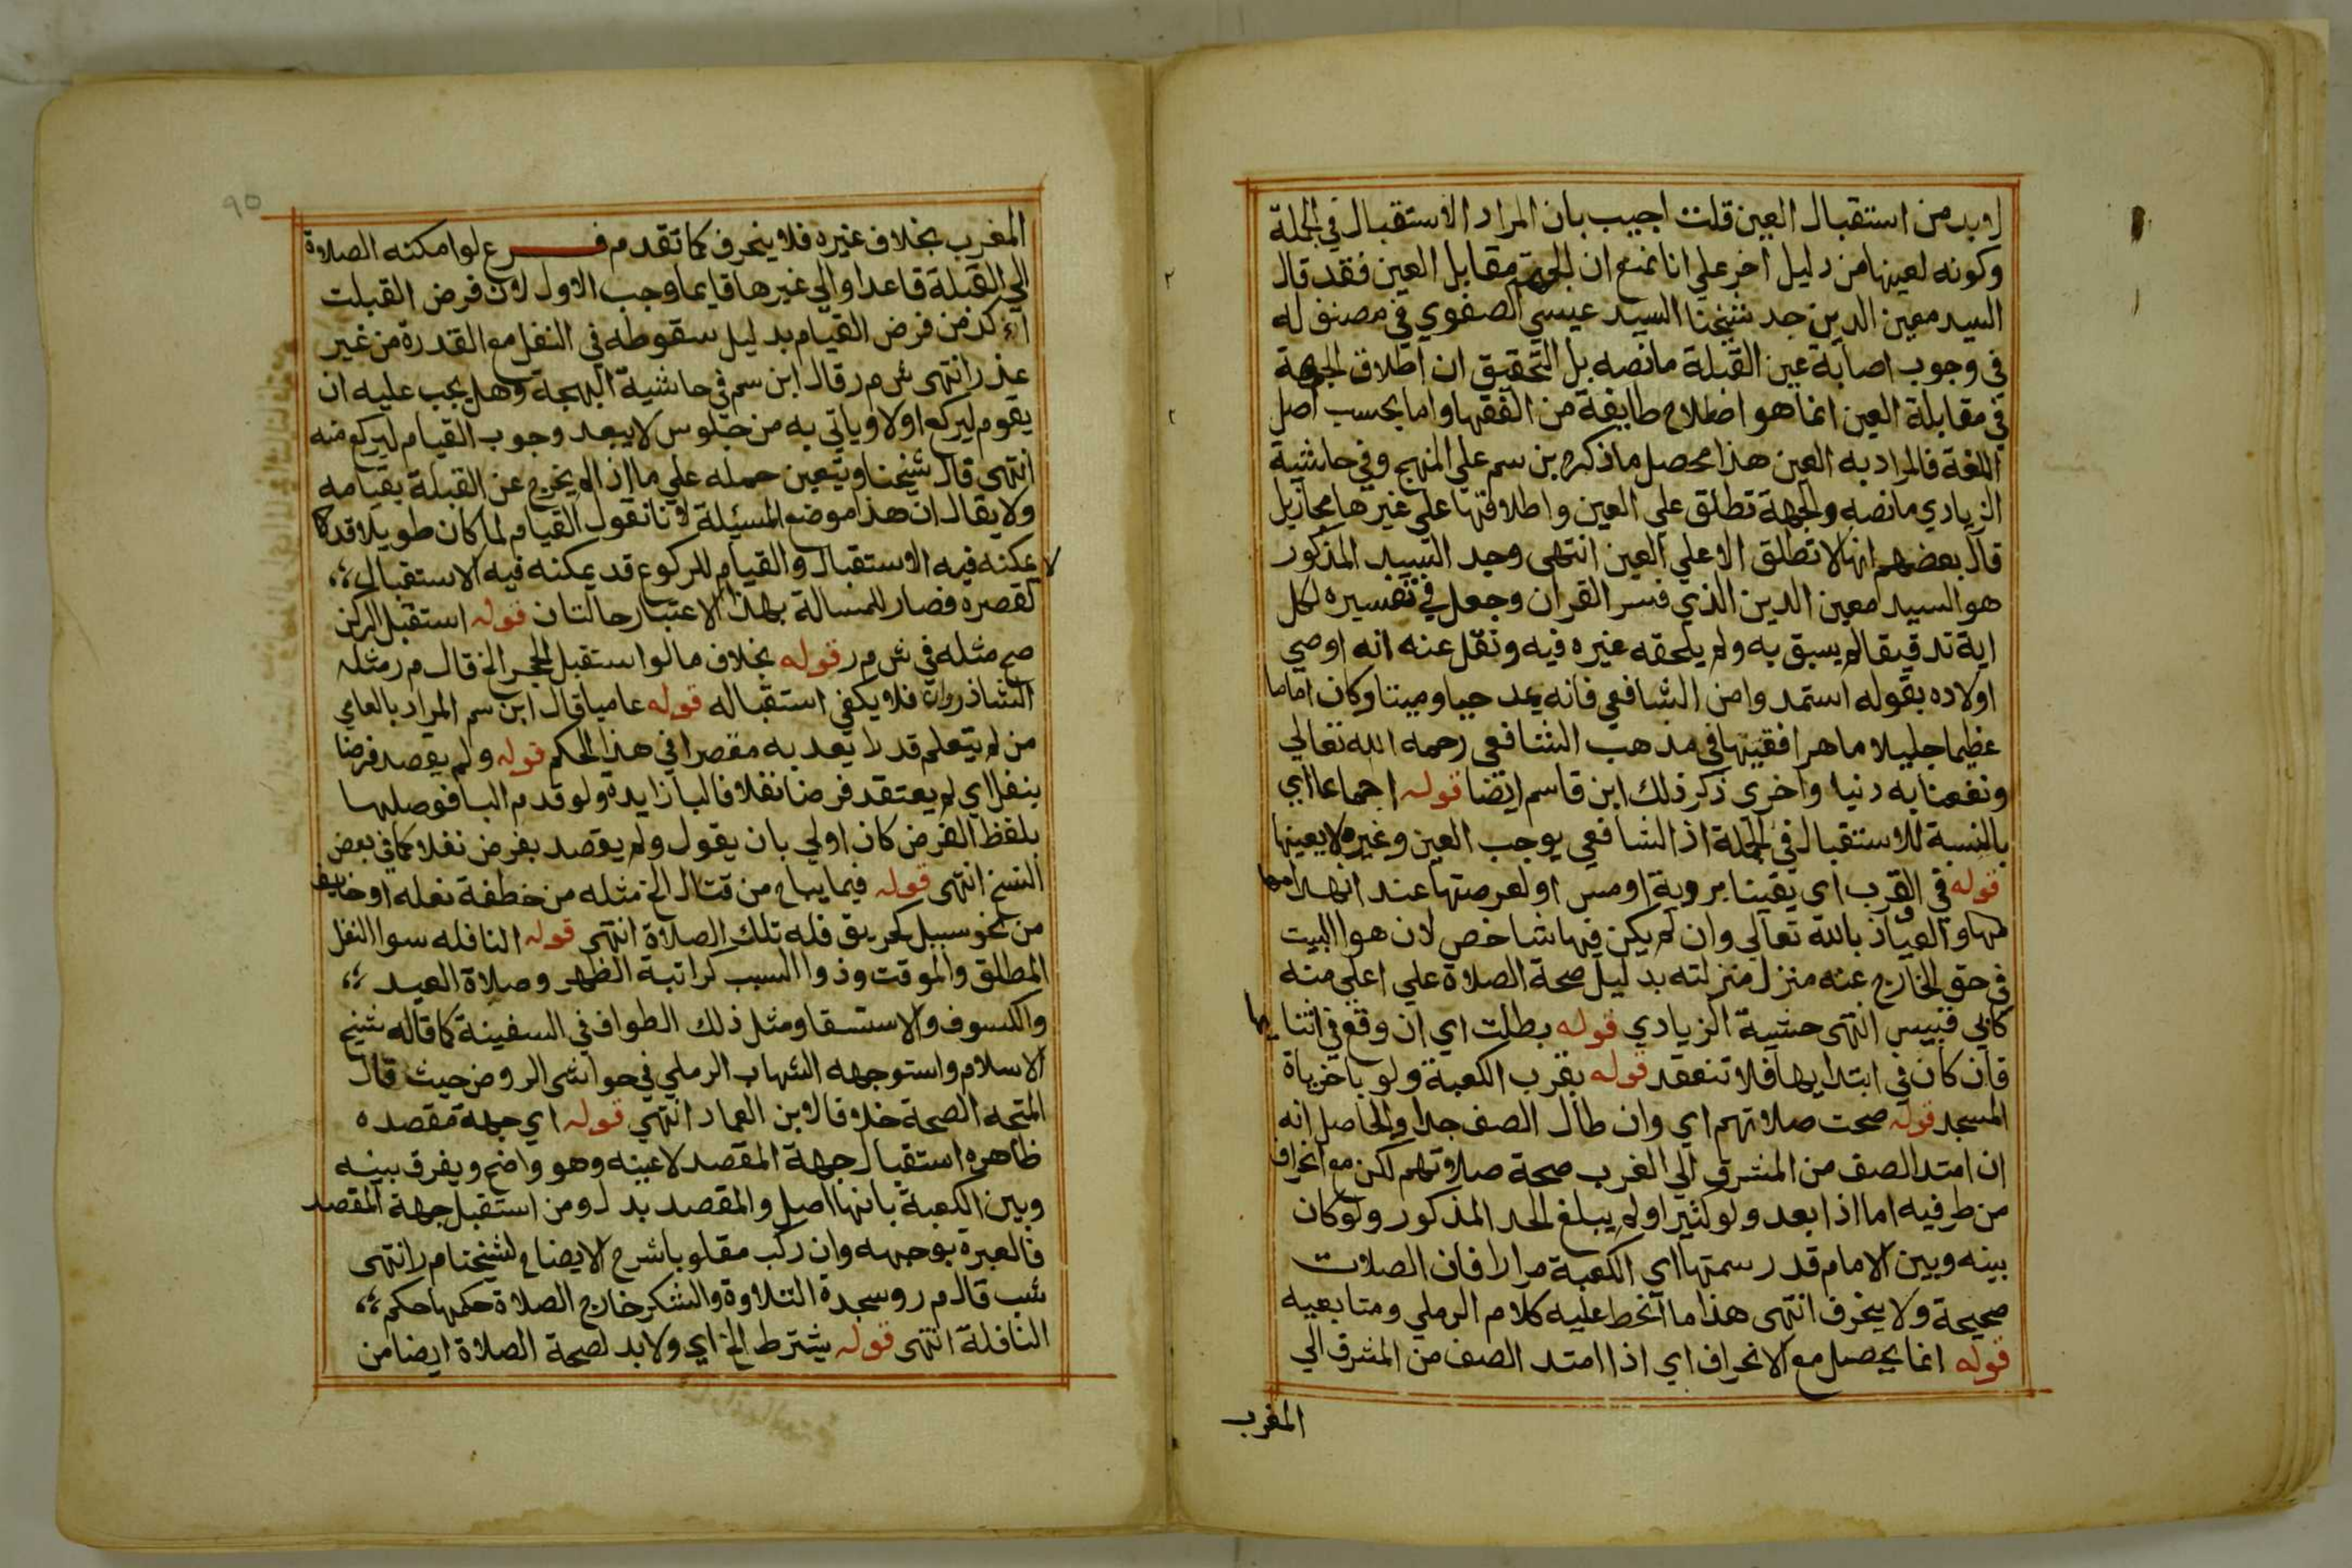 لابد من استقبال العين قلت اجيب بان المراد الاستقبال في الجملة
وكونه لعينها من دليل اخر علي انا نمنع ان الجهة مقابل العين فقد قال
السيد معين الدين جد شيخنا السيد عيسي الصفوي في مصنف له
في وجوب اصابة عين القبلة ما نصه بل التحقيق ان اطلاق الجهة
في مقابلة العين انما هو اضطلاح طايفة من الفقها واما بحسب اصل
اللغة فالمراد به العين هذا محصل ما ذكره بن سم علي المنهج وفي حاشية
الزيادي ما نصه والجهة تطلق علي العين واطلاقها علي غيرها مجاز بل
قال بعضهم انها لا تطلق الا علي العين انتهى وجد السيد المذكور
هو السيد معين الدين الذي فسر القران وجعل في تفسيره لكل
اية تدقيقا لم يسبق به ولم يلحقه غيره فيه ونقل عنه انه اوصي
اولاده بقوله استمدوا من الشافعي فانه يمد حيا وميتا وكان اماما
عظيما جليلا ماهرا فقيها في مذهب الشافعي رحمه الله تعالي
ونفعنا به دنيا واخرى ذكر ذلك ابن قاسم ايضا قوله اجماعا اي
بالنسبة للاستقبال في الجملة اذ الشافعي يوجب العين وغيره لا يعينها
قوله في القرب اى يقينا بروية او مس او لعرصتها عند انهدامها
لها والعياذ بالله تعالي وان لم يكن فيها شاخص لان هوا البيت
في حق الخارج عنه منزل منزلته بدليل صحة الصلاة علي اعلي منه
كابي قبيس انتهى حشية الزيادي قوله بطلت اي ان وقع في اثنايها
فان كان في ابتدايها فلا تنعقد قوله بقرب الكعبة ولو باخرياة
المسجد قوله صحت صلاتهم اي وان طال الصف جدا والحاصل انه
ان امتد الصف من المشرق الي الغرب صحة صلاتهم لكن مع انحراف
من طرفيه اما اذا بعد ولو كثيرا ولم يبلغ الحد المذكور ولو كان
بينه وبين الامام قدر سمتها اي الكعبة مرارا فان الصلات
صحيحة ولا ينحرف انتهى هذا ما انحط عليه كلام الرملي ومتابعيه
قوله انما يحصل مع الانحراف اي اذا امتد الصف من المشرق الي
المغرب
٩٥
المغرب بخلاف غيره فلا ينحرف كما تقدم فرع لو امكنه الصلاة
الي القبلة قاعدا والي غيرها قايما وجب الاول لان فرض القبلت
اءكد من فرض القيام بدليل سقوطه في النفل مع القدرة من غير
عذر انتهى ش م ر قال ابن سم في حاشية البهجة وهل يجب عليه ان
يقوم ليركع اولا وياتي به من جلوس لا يبعد وجوب القيام ليركع منه
انتهى قال شيخنا ويتعين حمله علي ما اذا لم يخرج عن القبلة بقيامه
ولا يقال ان هذا موضع المسئيلة لانا نقول القيام لما كان طويلا قد
لا يمكنه فيه الاستقبال والقيام للركوع قد يمكنه فيه الاستقبال
لقصره فصار للمسالة بهذا الاعتبار حالتان قوله استقبل الركن
صح مثله في ش م ر قوله بخلاف ما لو استقبل الحجر الخ قال م ر مثله
الشاذروان فلا يكفي استقباله قوله عاميا قال ابن سم المراد بالعامي
من لم يتعلم قد لا يعد به مقصرا في هذا الحكم قوله ولم يقصد فرضا
بنفل اي لم يعتقد فرضا نفلا فالبا زايده ولو قدم البا فوصلها
بلفظ الفرض كان اولي بان يقول ولم يقصد بفرض نفلا كما في بعض
النسخ انتهى قوله فيما يباح من قتال الخ مثله من خطفة نعله او خايف
من نحو سبيل كحريق فله تلك الصلاة انتهى قوله النافله سوا النفل
المطلق والموقت وذوا السبب كراتبة الظهر وصلاة العيد
والكسوف والاستسقا ومثل ذلك الطواف في السفينة كما قاله شيخ
الاسلام واستوجهه الشهاب الرملي في حواشى الروض حيث قال
المتجه الصحة خلافا لابن العماد انتهي قوله اي جهة مقصده
ظاهره استقبال جهة المقصد لا عينه وهو واضح ويفرق بينه
وبين الكعبة بانها اصل والمقصد بدل ومن استقبل جهة المقصد
فالعبرة بوجهه وان ركب مقلوبا شرح الايضاح لشيخنا م ر انتهى
شب قال م ر وسجدة التلاوة والشكر خارج الصلاة حكمها حكم
النافلة انتهى قوله يشترط الخ اي ولابد لصحة الصلاة ايضا من